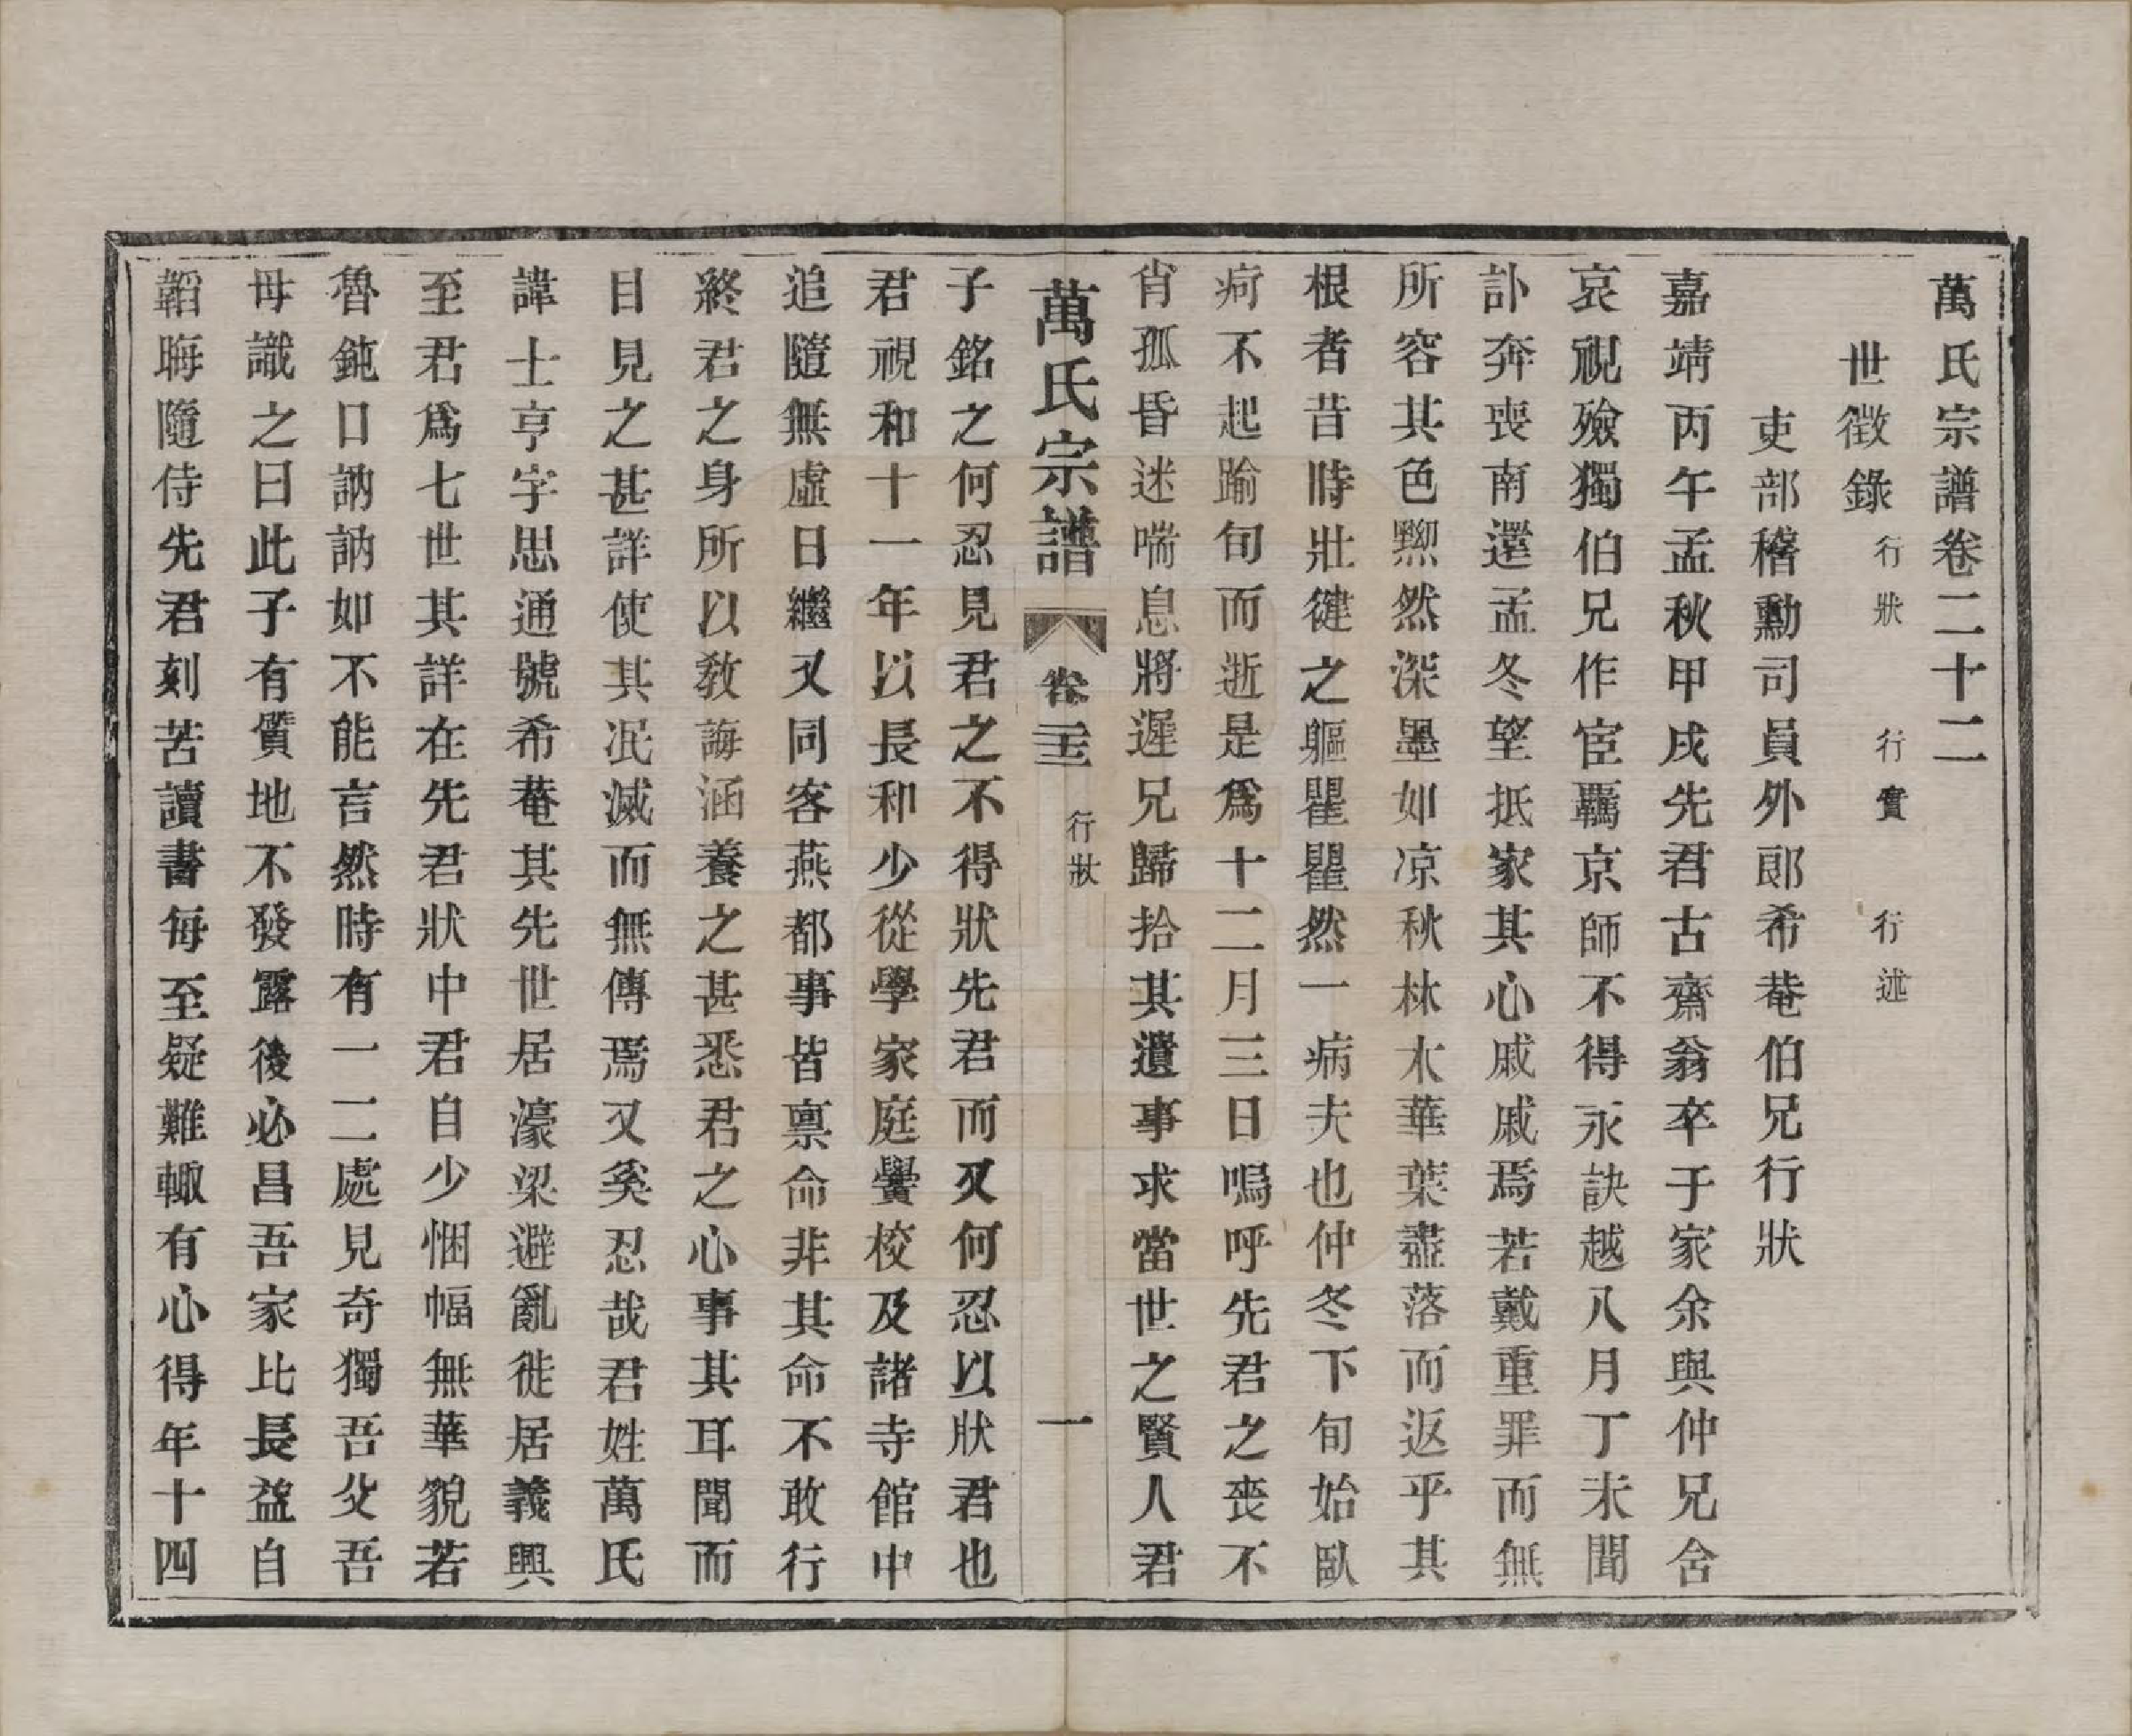 萬氏宗譜卷二十二
世徵錄 行狀 行實 行述
吏部稽勳司員外郎希菴伯兄行狀
嘉靖丙午孟秋甲戌先君古齋翁卒于家余與仲兄舍
哀視殮獨伯兄作宦羈京師不得永訣越八月丁未聞
訃奔喪南還孟冬望抵家其心戚戚焉若戴重罪而無
所容其色黟然深墨如凉秋林木華葉盡落而返乎其
根者昔時壯健之軀瞿瞿然一病夫也仲冬下旬始臥
疴不起踰旬而逝是爲十二月三日嗚呼先君之喪不
肖孤昏迷喘息將遲兄歸拾其遺事求當世之賢人君
萬氏宗譜 卷二十二 行狀 一
子銘之何忍見君之不得狀先君而又何忍以狀君也
君視和十一年以長和少從學家庭黌校及諸寺館中
追隨無虛日繼又同客燕都事皆禀命非其命不敢行
終君之身所以敎誨涵養之甚悉君之心事其耳聞而
目見之甚詳使其泯滅而無傳焉又奚忍哉君姓萬氏
諱士亨字思通號希菴其先世居濠梁避亂徙居義興
至君爲七世其詳在先君狀中君自少悃幅無華貌若
魯鈍口訥訥如不能言然時有一二處見奇獨吾父吾
母識之曰此子有質地不發露後必昌吾家比長益自
韜晦隨侍先君刻苦讀書每至疑難輙有心得年十四